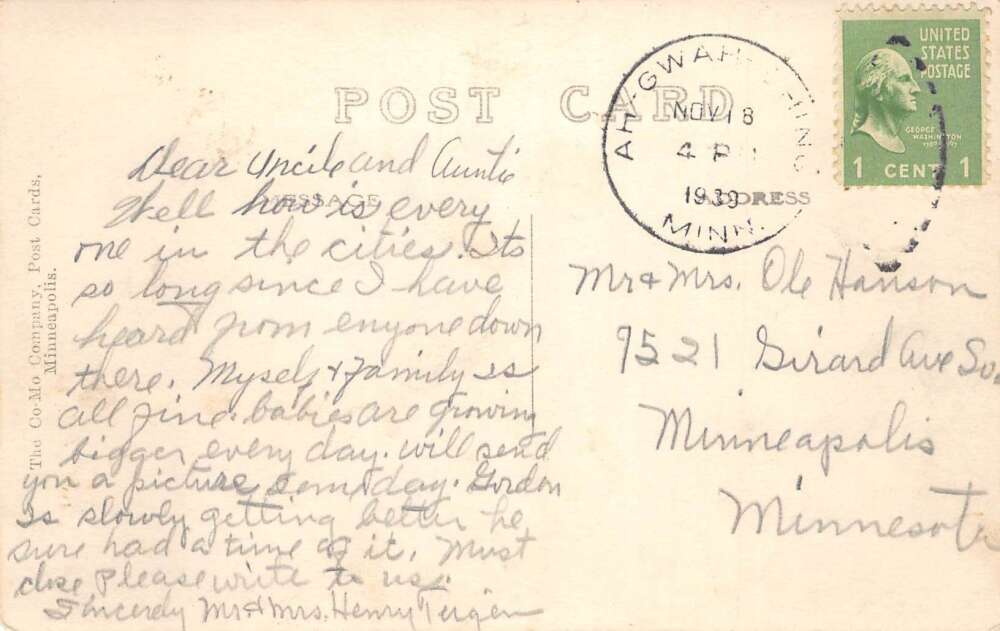 POST CARD
AH-GWAH-CHING
NOV 18
4 P
1939
MINN.
UNITED
STATES
POSTAGE
GEORGE
WASHINGTON
1 CENT 1
MESSAGE
ADDRESS
The Co-Mo Company, Post Cards,
Minneapolis.
Dear Uncle and Auntie
Well how is every
one in the cities. Its
so long since I have
heard from enyone down
there. Myself & family is
all fine. babies are growing
bigger every day. will send
you a picture someday. Gordon
is slowly getting better he
sure had a time of it. Must
close Please write to us.
Sinceray Mr & Mrs. Henry Tergen
Mr & Mrs. Ole Hanson
9521 Girard Ave So.
Minneapolis
Minnesota